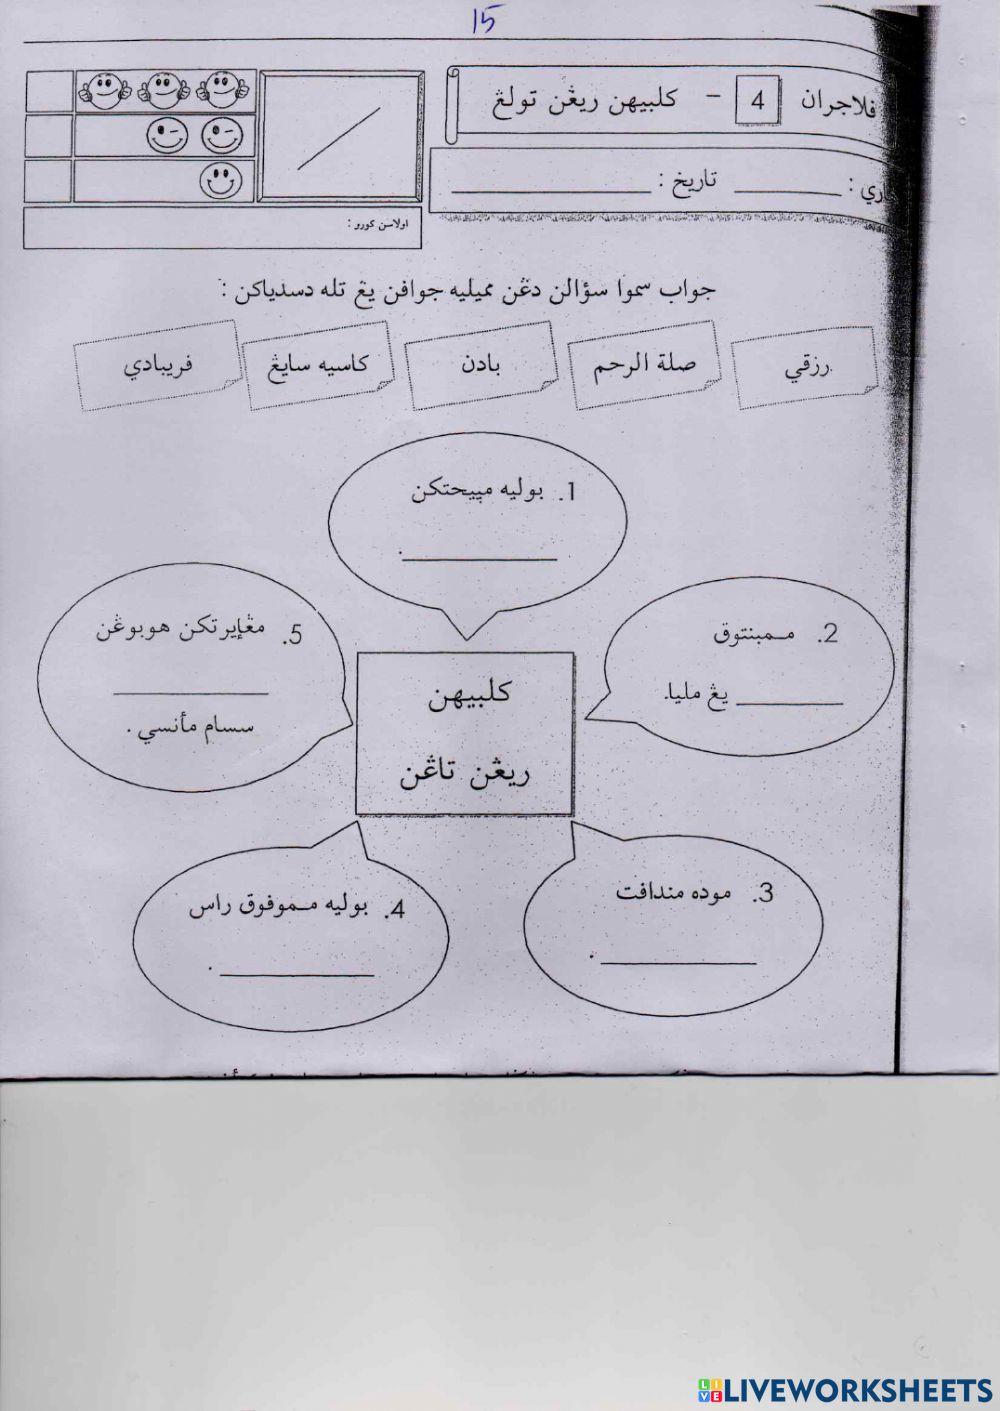 15
ڤلاجران 4 - كلبيهن ريڠن تولڠ
تاريخ :
اولاسن ݢورو :
جواب سموا سؤالن دڠن مميليه جواڤن يڠ تله دسدياكن :
رزقي
صلة الرحم
بادن
كاسيه سايڠ
ڤريبادي
1. بوليه مڽيحتكن
.
2. ممبنتوق
يڠ مليا.
3. موده منداڤت
.
4. بوليه مموڤوق راس
.
5. مڠإيرتكن هوبوڠن
سسام مأنسي .
كلبيهن
ريڠن تاڠن
LIVEWORKSHEETS